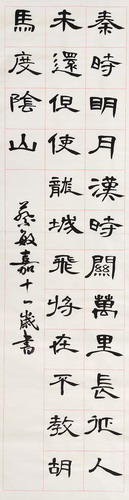 秦時明月漢時關萬里長征人
未還但使龍城飛將在不教胡
馬度陰山
蔡敏嘉十一歲書